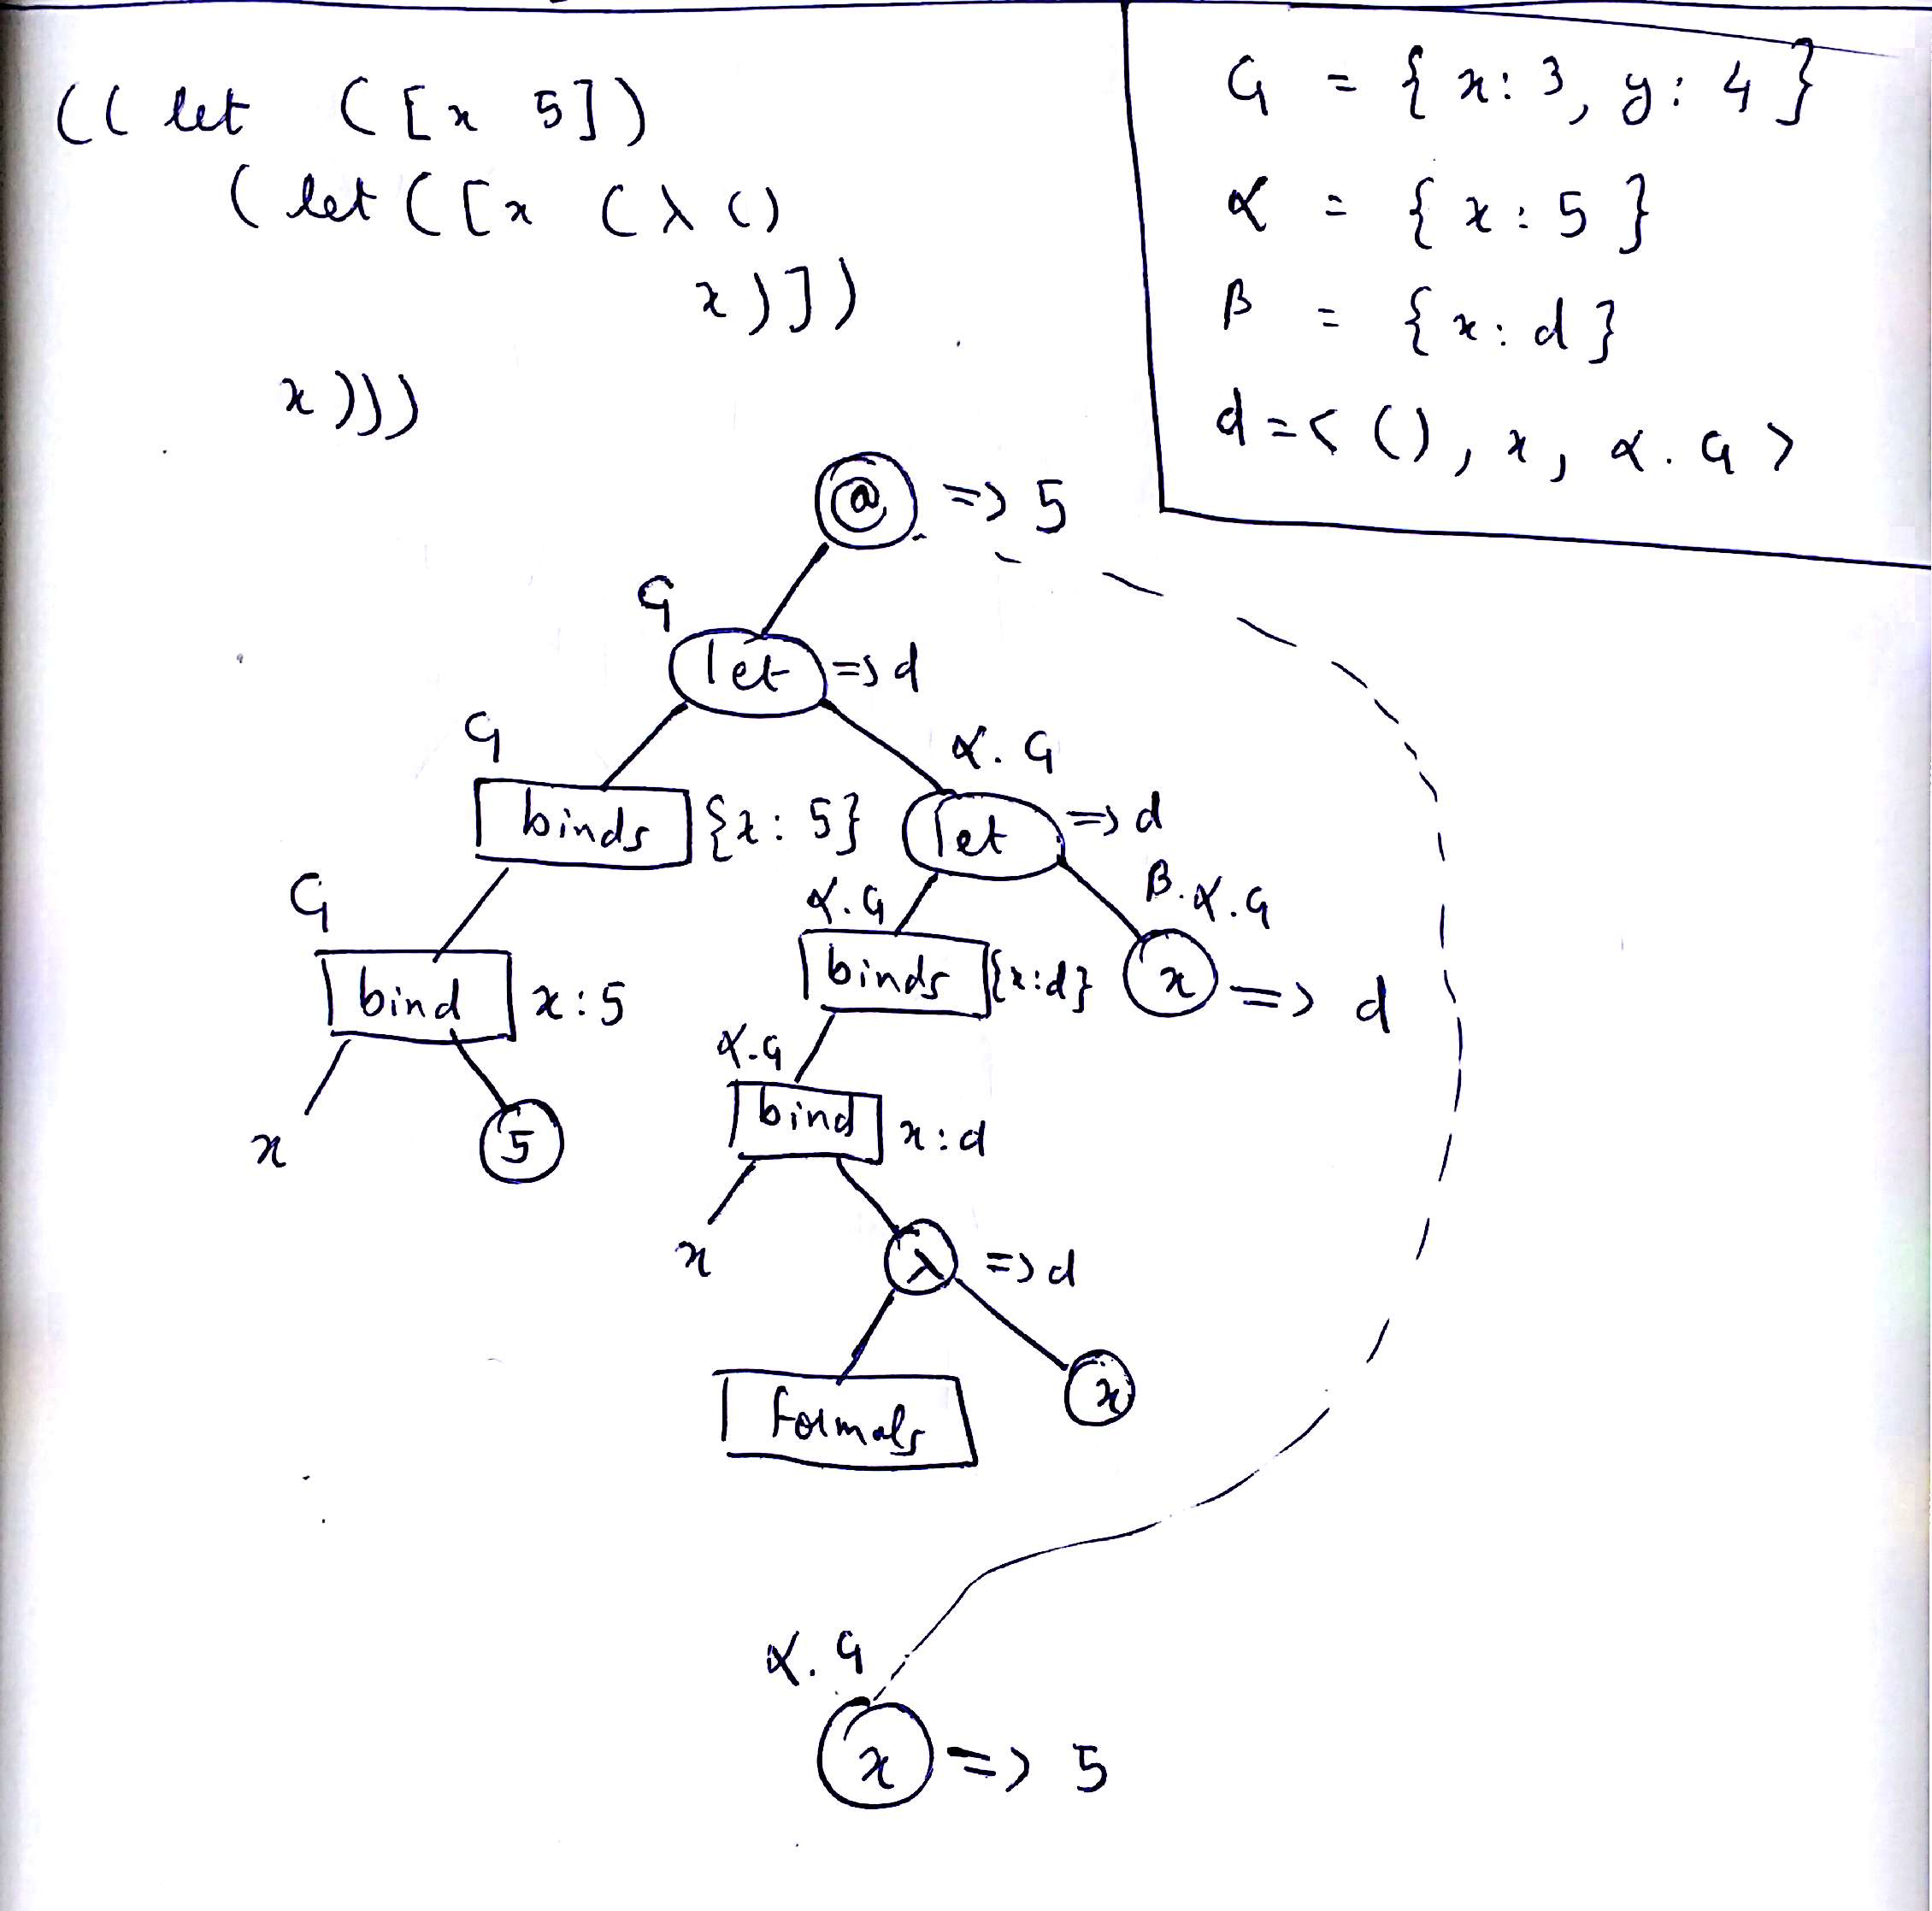 (( let ([x 5])
( let ([x (λ ()
x)])
x)))
G = { x: 3, y: 4 }
α = { x: 5 }
β = { x: d }
d = < (), x, α. G >
@ => 5
G
let => d
G
α. G
binds {x: 5}
let => d
G
α.G
β.α.G
bind x:5
binds {x:d}
x => d
α.G
x
5
bind x:d
x
λ => d
Formals
x
α. G
x => 5